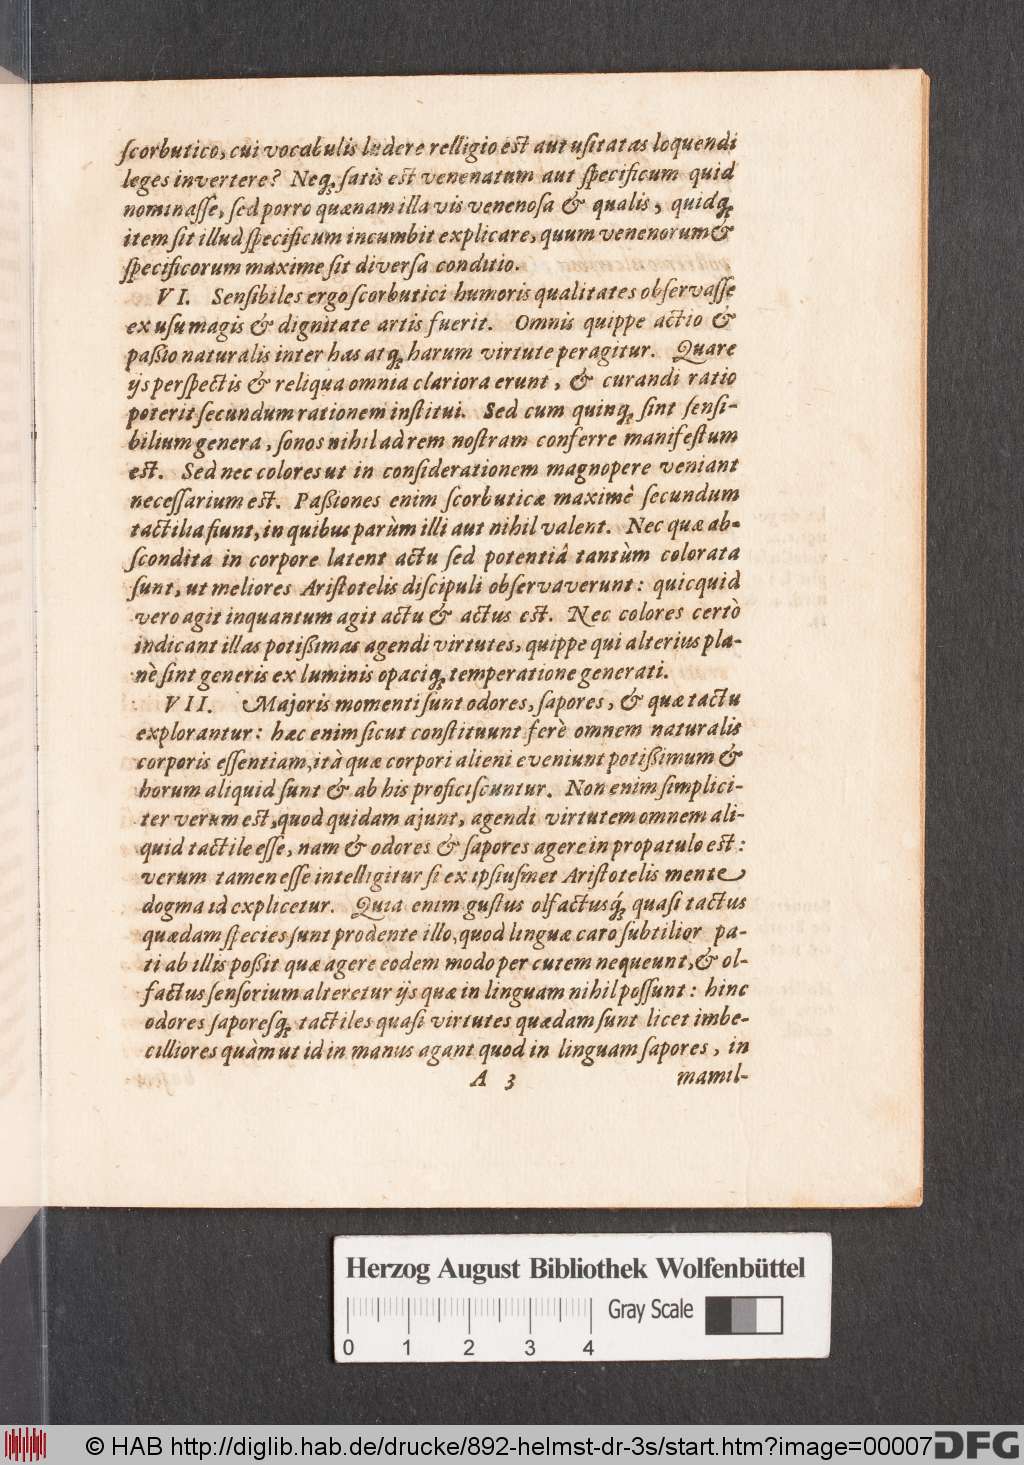 ſcorbutico, cui vocabulis ludere relligio eſt aut uſitatas loquendi
leges invertere? Neq; ſatis eſt venenatum aut ſpecificum quid
nominaſſe, ſed porro quænam illa vis venenoſa & qualis, quidq;
item ſit illud ſpecificum incumbit explicare, quum venenorum &
ſpecificorum maxime ſit diverſa conditio.
VI. Senſibiles ergo ſcorbutici humoris qualitates obſervaſſe
ex uſu magis & dignitate artis fuerit. Omnis quippe actio &
paßio naturalis inter has atq; harum virtute peragitur. Quare
ijs perſpectis & reliqua omnia clariora erunt, & curandi ratio
poterit ſecundum rationem inſtitui. Sed cum quinq; ſint ſenſi-
bilium genera, ſonos nihil ad rem noſtram conferre manifeſtum
eſt. Sed nec colores ut in conſiderationem magnopere veniant
neceſſarium eſt. Paßiones enim ſcorbuticæ maximè ſecundum
tactilia fiunt, in quibus parùm illi aut nihil valent. Nec quæ ab-
ſcondita in corpore latent actu ſed potentiâ tantùm colorata
ſunt, ut meliores Ariſtotelis diſcipuli obſervaverunt: quicquid
vero agit inquantum agit actu & actus eſt. Nec colores certò
indicant illas potißimas agendi virtutes, quippe qui alterius pla-
nè ſint generis ex luminis opaciq; temperatione generati.
VII. Majoris momenti ſunt odores, ſapores, & quæ tactu
explorantur: hæc enim ſicut conſtituunt ferè omnem naturalis
corporis eſſentiam, ità quæ corpori alieni eveniunt potißimum &
horum aliquid ſunt & ab his proficiſcuntur. Non enim ſimplici-
ter verum eſt, quod quidam ajunt, agendi virtutem omnem ali-
quid tactile eſſe, nam & odores & ſapores agere in propatulo eſt:
verum tamen eſſe intelligitur ſi ex ipſiuſmet Ariſtotelis mente
dogma id explicetur. Quia enim guſtus olfactusq́; quaſi tactus
quædam ſpecies ſunt prodente illo, quod linguæ caro ſubtilior pa-
ti ab illis poßit quæ agere eodem modo per cutem nequeunt, & ol-
factus ſenſorium alteretur ijs quæ in linguam nihil poſſunt: hinc
odores ſaporeſq; tactiles quaſi virtutes quædam ſunt licet imbe-
cilliores quàm ut id in manus agant quod in linguam ſapores, in
A 3 mamil-
Herzog August Bibliothek Wolfenbüttel
Gray Scale
0 1 2 3 4
© HAB http://diglib.hab.de/drucke/892-helmst-dr-3s/start.htm?image=00007
DFG